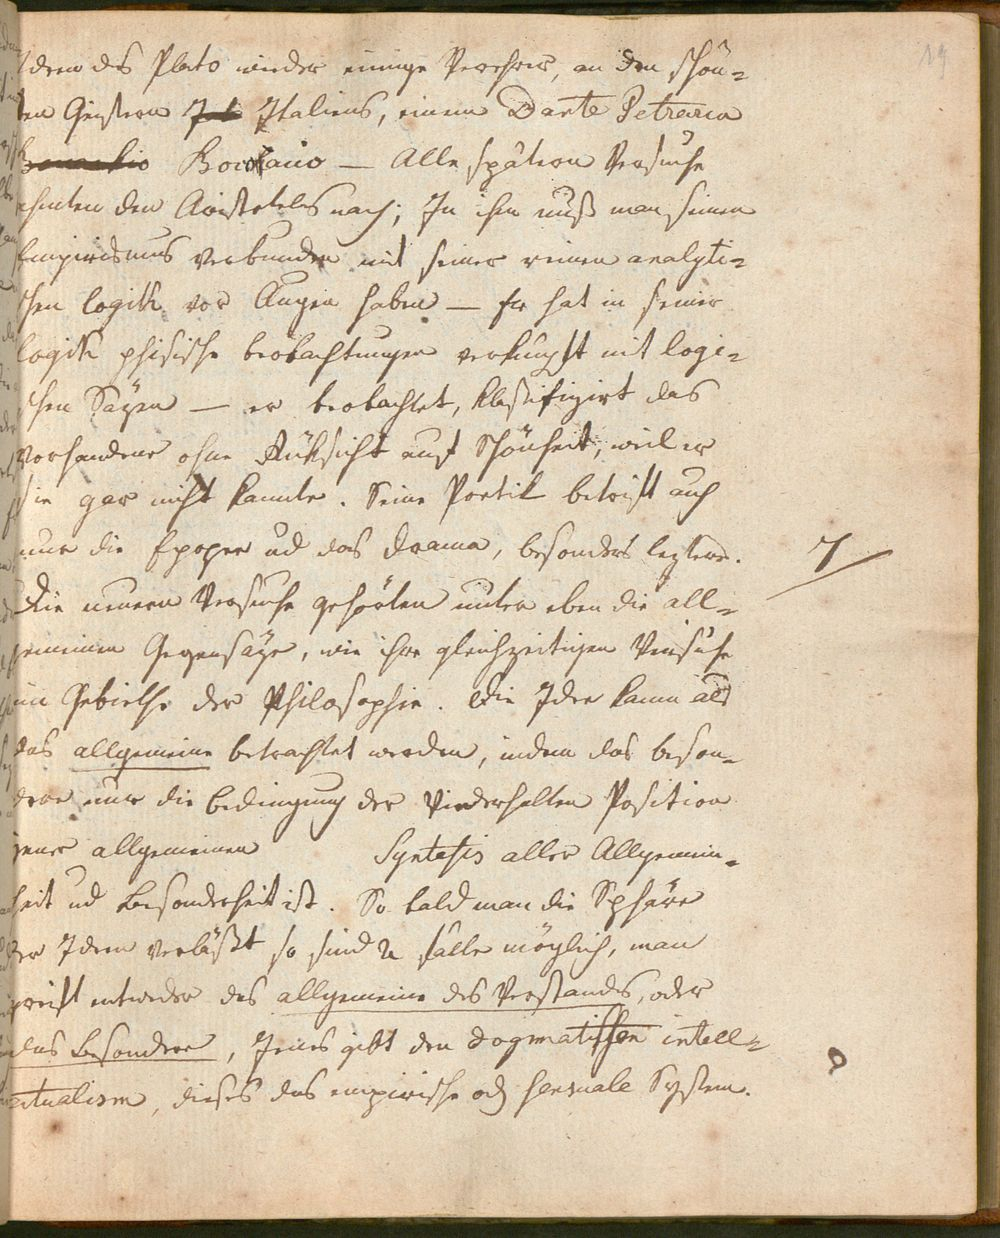 19
Ideen des Plato wieder einige Verehrer, an den schön-
ten Geistern Italiens, einem Dante Petrarca
Bocc Bocc̄acio — Alle spätern Versuche
ahmten den Aristoteles nach; In ihm muß man seinen
Empirismus verbunden mit seiner reinen analyti-
schen Logik vor Augen haben — Er hat in seiner
Logik phisische beobachtungen verknüpft mit logi-
schen Säzen — er beobachtet, klaßifizirt das
Vorhandene ohne Rüksicht auf Schönheit, weil er
sie gar nicht kannte. Seine Poetik betrifft auch
nur die Epopee ud das Drama, besonders leztere.
Die neuern Versuche gehörten unter eben die all-
gemeinen Gegensäze, wie ihre gleichzeitigen Versuche
im Gebiethe der Philosophie. Die Idee kann als
das allgemeine betrachtet werden, indem das beson-
dere nur die bedingung der Position
jener allgemeinen Syntesis aller Allgemein-
heit ud Besonderheit ist. So bald man die Sphäre
der Ideen verläßt so sind 2 fälle möglich, man
greift entweder das allgemeine des Verstandes, oder
das Besondere, Jenes gibt den dogmatischen intell-
ectualism, dieses das empirische od sensuale System.